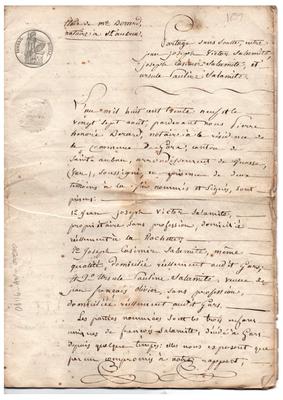 Etude de Me Dorard,
notaire à St auban.
Partage sans soulte, entre
jean joseph Victor Salamite,
joseph Casimir Salamite, et
ursule Pauline Salamite.
L'an mil huit cent trente neuf et le
vingt sept août, pardevant nous Pierre
honoré Dorard, notaire à la résidence de
la commune de canton de
Saint auban, arrondissement de Grasse
(Var), soussigné, en présence de deux
témoins à la fin nommés et signés, sont
présens:
1° Jean joseph Victor Salamite,
propriétaire sans profession, domicilié
réellement à la Rochette;
2° Joseph Casimir Salamite, même
qualité, domicilié réellement audit Gars;
& 3° Ursule Pauline Salamite, veuve de
jean françois olivier, sans profession,
domiciliée réellement audit Gars.
Les parties nommées sont les trois enfans
uniques de françois Salamite, décédé à Gars
depuis quelque tems; elles nous exposent que
par un compromis à notre rapport,